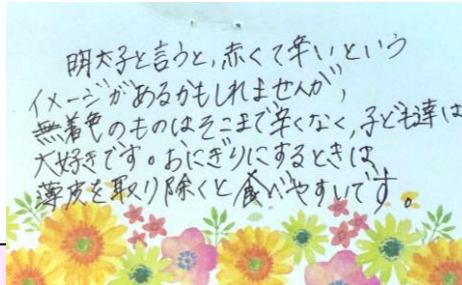 明太子と言うと、赤くて辛いという
イメージがあるかもしれませんが、
無着色のものはそこまで辛くなく、子ども達は
大好きです。おにぎりにするときは
薄皮を取り除くと食べやすいです。